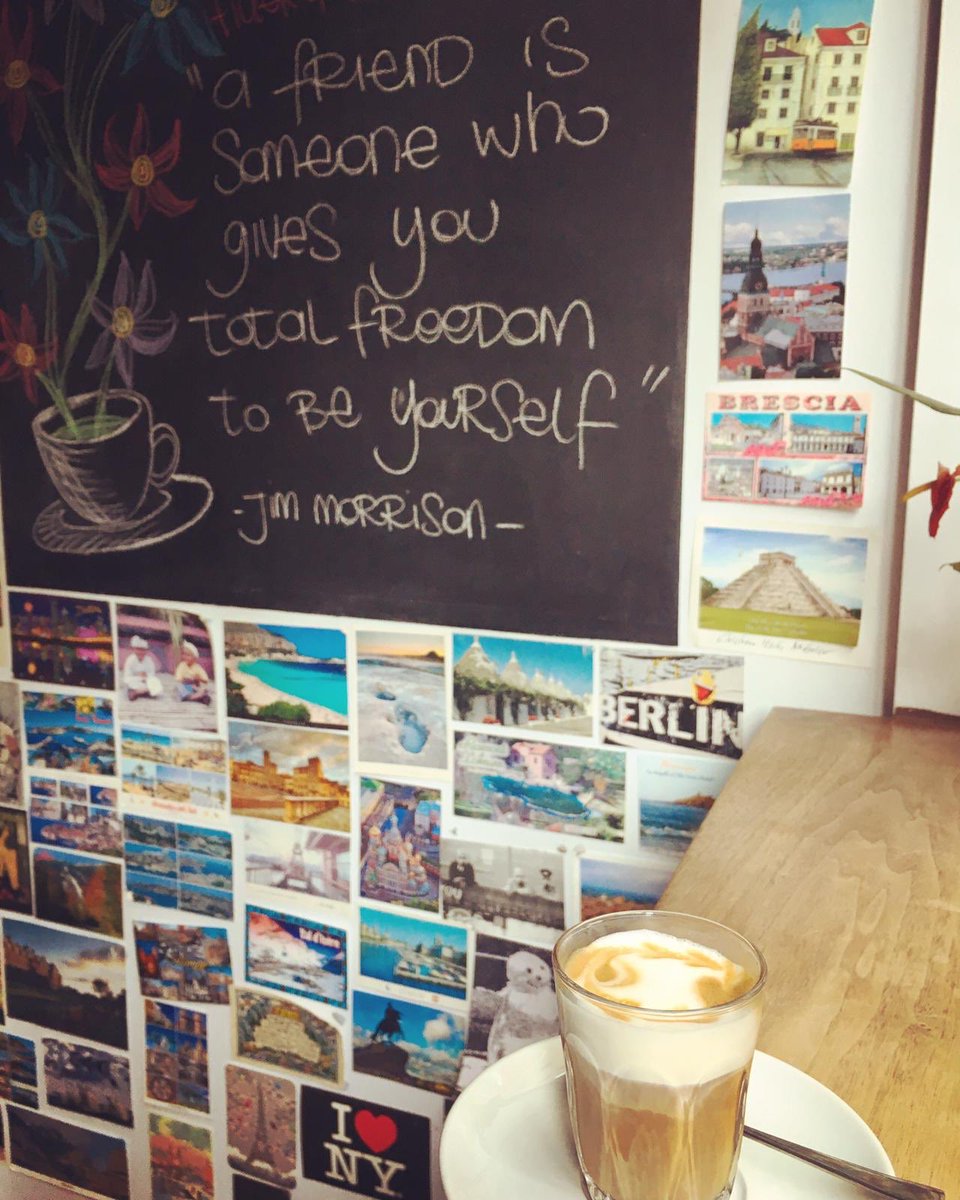 "a friend is
someone who
gives you
total freedom
to be yourself"
-Jim Morrison-
BRESCIA
BERLIN
Val d'Isère
I ♥
NY